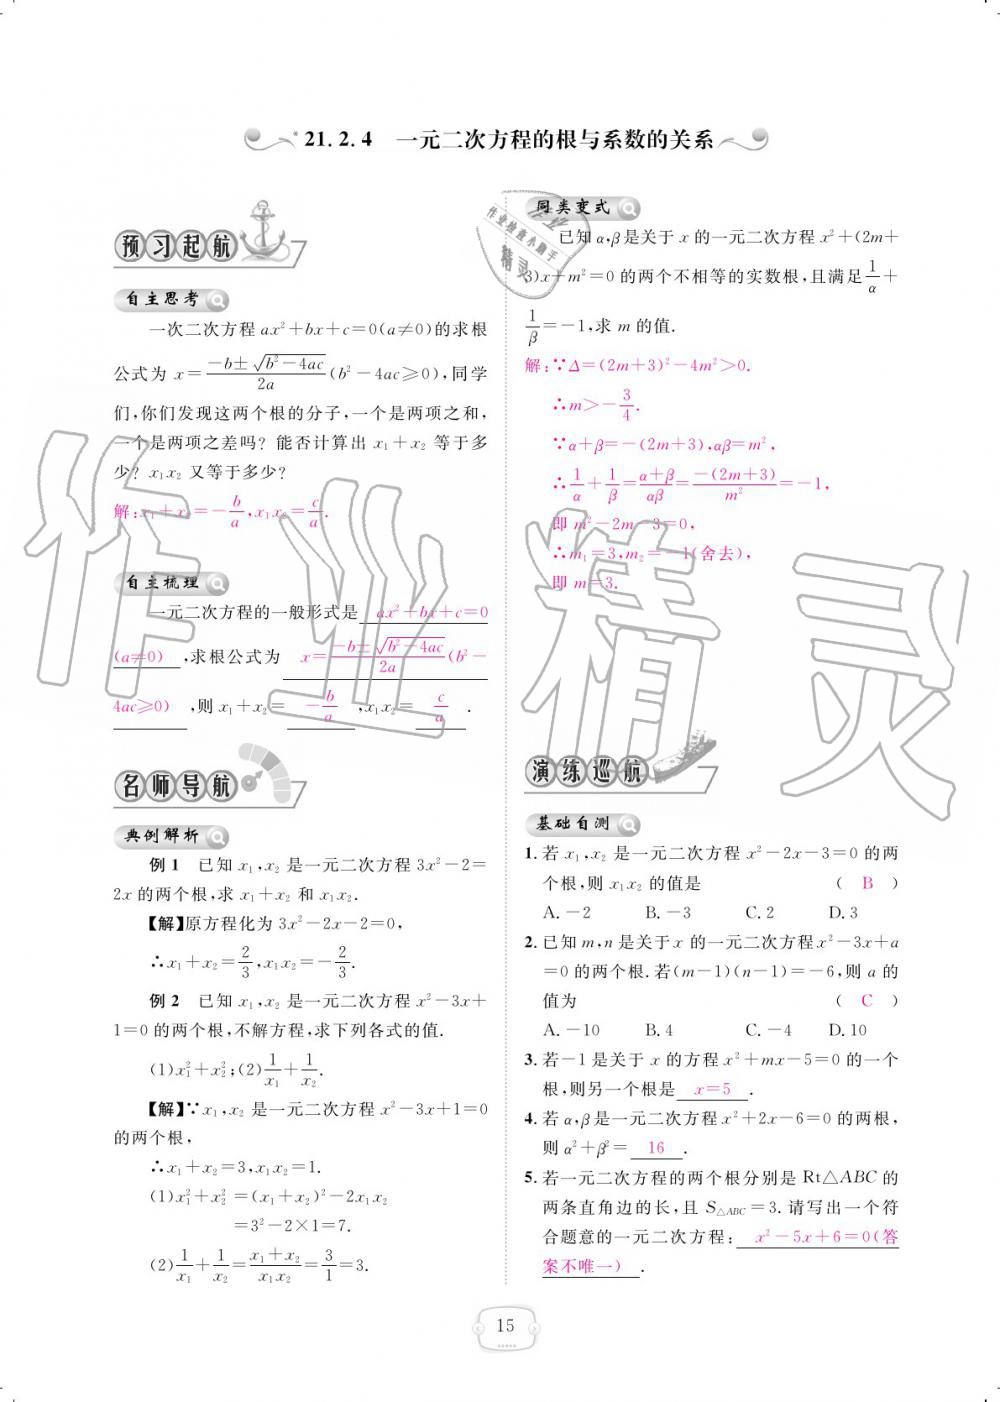 *21.2.4 一元二次方程的根与系数的关系
预习起航
自主思考
一次二次方程 ax²+bx+c=0(a≠0)的求根
公式为 x=\frac{-b±\sqrt{b²-4ac}}{2a}(b²-4ac≥0),同学
们,你们发现这两个根的分子,一个是两项之和,
一个是两项之差吗? 能否计算出 x₁+x₂ 等于多
少? x₁x₂ 又等于多少?
解:x₁+x₂=-\frac{b}{a},x₁x₂=\frac{c}{a}.
自主梳理
一元二次方程的一般形式是 ax²+bx+c=0
(a≠0) ,求根公式为 x=\frac{-b±\sqrt{b²-4ac}}{2a}(b²-
4ac≥0) ,则 x₁+x₂= -\frac{b}{a} ,x₁x₂= \frac{c}{a} .
名师导航
典例解析
例1 已知 x₁,x₂ 是一元二次方程 3x²-2=
2x 的两个根,求 x₁+x₂ 和 x₁x₂.
【解】原方程化为 3x²-2x-2=0,
∴x₁+x₂=\frac{2}{3},x₁x₂=-\frac{2}{3}.
例2 已知 x₁,x₂ 是一元二次方程 x²-3x+
1=0 的两个根,不解方程,求下列各式的值.
(1)x₁²+x₂²;(2)\frac{1}{x₁}+\frac{1}{x₂}.
【解】∵x₁,x₂ 是一元二次方程 x²-3x+1=0
的两个根,
∴x₁+x₂=3,x₁x₂=1.
(1)x₁²+x₂²=(x₁+x₂)²-2x₁x₂
=3²-2×1=7.
(2)\frac{1}{x₁}+\frac{1}{x₂}=\frac{x₁+x₂}{x₁x₂}=\frac{3}{1}=3.
同类变式
已知 α,β是关于 x 的一元二次方程 x²+(2m+
3)x+m²=0 的两个不相等的实数根,且满足\frac{1}{α}+
\frac{1}{β}=-1,求 m 的值.
解:∵Δ=(2m+3)²-4m²>0.
∴m>-\frac{3}{4}.
∵α+β=-(2m+3),αβ=m²,
∴\frac{1}{α}+\frac{1}{β}=\frac{α+β}{αβ}=\frac{-(2m+3)}{m²}=-1,
即 m²-2m-3=0,
∴m₁=3,m₂=-1(舍去),
即 m=3.
演练巡航
基础自测
1. 若 x₁,x₂ 是一元二次方程 x²-2x-3=0 的两
个根,则 x₁x₂ 的值是 ( B )
A.-2 B.-3 C.2 D.3
2. 已知 m,n 是关于 x 的一元二次方程 x²-3x+a
=0 的两个根.若(m-1)(n-1)=-6,则 a 的
值为 ( C )
A.-10 B.4 C.-4 D.10
3. 若-1 是关于 x 的方程 x²+mx-5=0 的一个
根,则另一个根是 x=5 .
4. 若 α,β是一元二次方程 x²+2x-6=0 的两根,
则 α²+β²= 16 .
5. 若一元二次方程的两个根分别是 Rt△ABC 的
两条直角边的长,且 S△ABC=3. 请写出一个符
合题意的一元二次方程: x²-5x+6=0(答
案不唯一) .
15
作业精灵
作业检查小助手
精灵